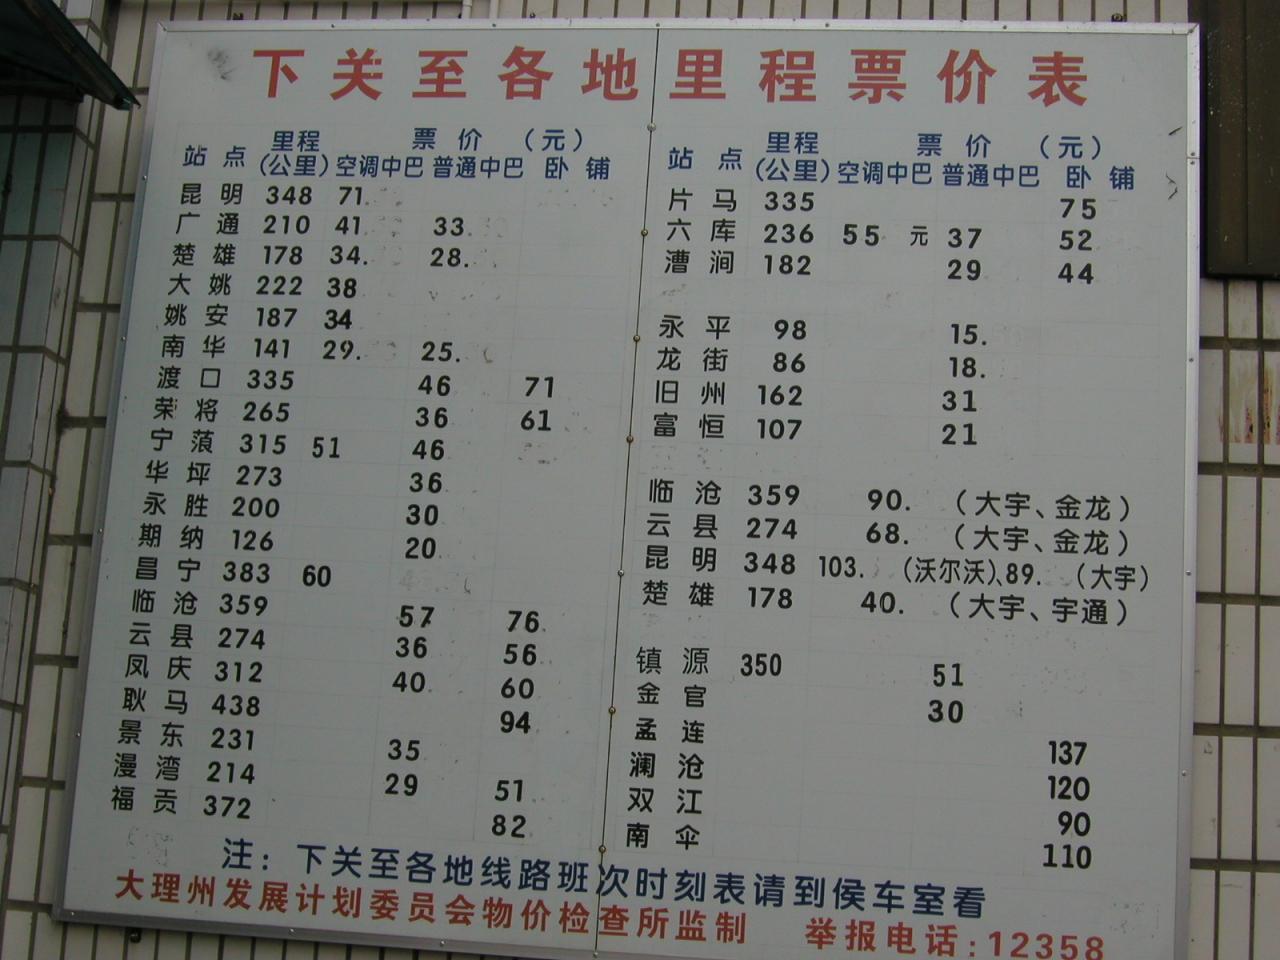 下关至各地里程票价表
站点 里程(公里) 票价(元) 空调中巴 普通中巴 卧铺
昆明 348 71
广通 210 41 33
楚雄 178 34. 28.
大姚 222 38
姚安 187 34
南华 141 29. 25.
渡口 335 46 71
荣将 265 36 61
宁蒗 315 51 46
华坪 273 36
永胜 200 30
期纳 126 20
昌宁 383 60
临沧 359 57 76
云县 274 36 56
凤庆 312 40 60
耿马 438 94
景东 231 35
漫湾 214 29 51
福贡 372 82
站点 里程(公里) 票价(元) 空调中巴 普通中巴 卧铺
片马 335 75
六库 236 55元 37 52
漕涧 182 29 44
永平 98 15.
龙街 86 18.
旧州 162 31
富恒 107 21
临沧 359 90. (大宇、金龙)
云县 274 68. (大宇、金龙)
昆明 348 103. (沃尔沃)、89. (大宇)
楚雄 178 40. (大宇、宇通)
镇源 350 51
金官 30
孟连 137
澜沧 120
双江 90
南伞 110
注：下关至各地线路班次时刻表请到侯车室看
大理州发展计划委员会物价检查所监制 举报电话:12358